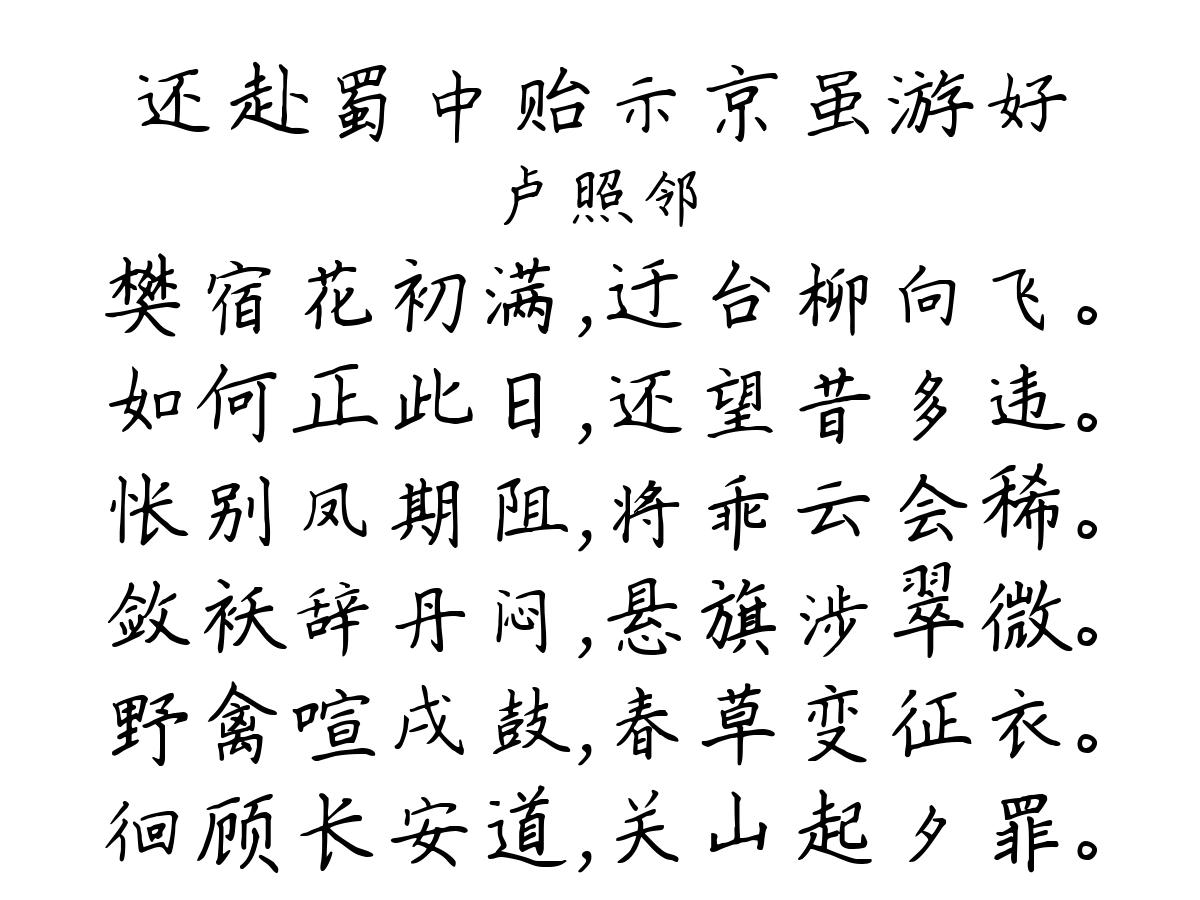 还赴蜀中贻示京虽游好
卢照邻
樊宿花初满,迂台柳向飞。
如何正此日,还望昔多违。
怅别凤期阻,将乖云会稀。
敛袄辞丹闷,悬旗涉翠微。
野禽喧戍鼓,春草变征衣。
徊顾长安道,关山起夕罪。